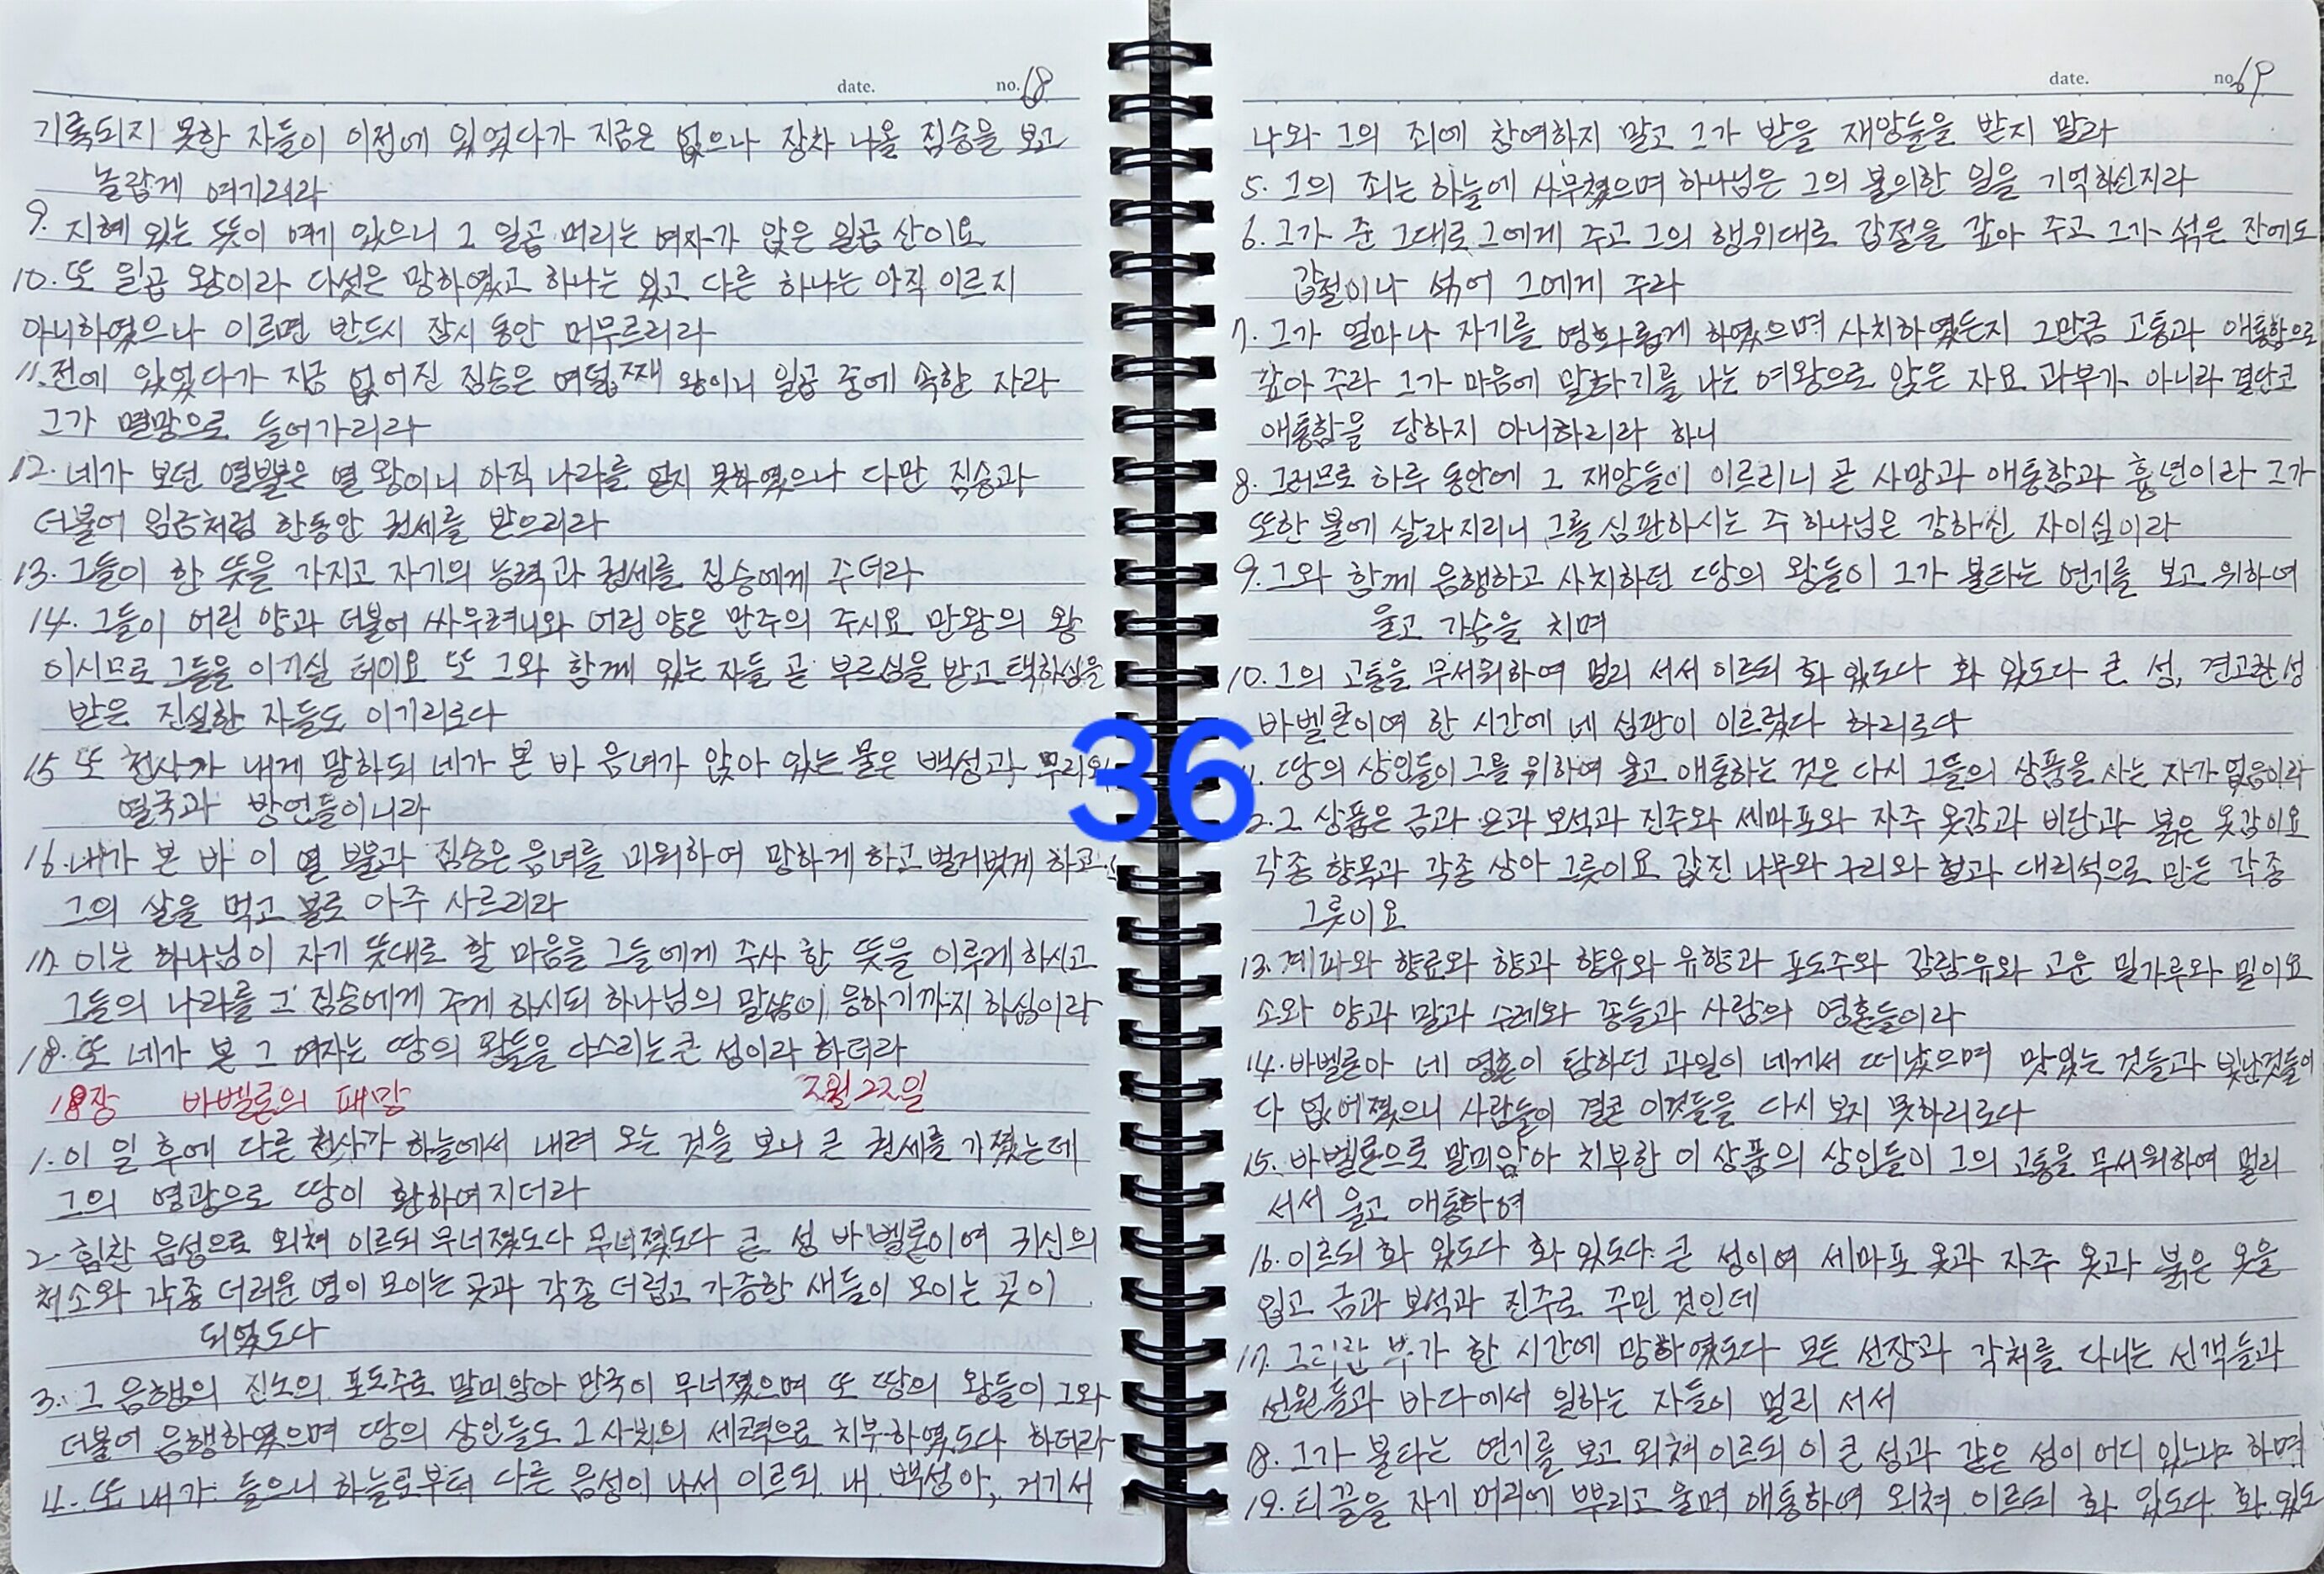 date. no. 68
기록되지 못한 자들이 이전에 있었다가 지금은 없으나 장차 나올 짐승을 보고
놀랍게 여기리라
9. 지혜 있는 뜻이 여기 있으니 그 일곱 머리는 여자가 앉은 일곱 산이요
10. 또 일곱 왕이라 다섯은 망하였고 하나는 있고 다른 하나는 아직 이르지
아니하였으나 이르면 반드시 잠시 동안 머무르리라
11. 전에 있었다가 지금 없어진 짐승은 여덟째 왕이니 일곱 중에 속한 자라
그가 멸망으로 들어가리라
12. 네가 보던 열뿔은 열 왕이니 아직 나라를 얻지 못하였으나 다만 짐승과
더불어 임금처럼 한동안 권세를 받으리라
13. 그들이 한 뜻을 가지고 자기의 능력과 권세를 짐승에게 주더라
14. 그들이 어린 양과 더불어 싸우려니와 어린 양은 만주의 주시요 만왕의 왕
이시므로 그들을 이기실 터이요 또 그와 함께 있는 자들 곧 부르심을 받고 택하심을
받은 진실한 자들도 이기리로다
15 또 천사가 내게 말하되 네가 본 바 음녀가 앉아 있는 물은 백성과 무리와
열국과 방언들이니라
16. 내가 본 바 이 열 뿔과 짐승은 음녀를 미워하여 망하게 하고 벌거벗게 하고
그의 살을 먹고 불로 아주 사르리라
17. 이는 하나님이 자기 뜻대로 할 마음을 그들에게 주사 한 뜻을 이루게 하시고
그들의 나라를 그 짐승에게 주게 하시되 하나님의 말씀이 응하기까지 하심이라
18. 또 네가 본 그 여자는 땅의 왕들을 다스리는 큰 성이라 하더라
18장 바벨론의 패망 2월 22일
1. 이 일 후에 다른 천사가 하늘에서 내려 오는 것을 보니 큰 권세를 가졌는데
그의 영광으로 땅이 환하여지더라
2. 힘찬 음성으로 외쳐 이르되 무너졌도다 무너졌도다 큰 성 바벨론이여 귀신의
처소와 각종 더러운 영이 모이는 곳과 각종 더럽고 가증한 새들이 모이는 곳이
되었도다
3. 그 음행의 진노의 포도주로 말미암아 만국이 무너졌으며 또 땅의 왕들이 그와
더불어 음행하였으며 땅의 상인들도 그 사치의 세력으로 치부하였도다 하더라
4. 또 내가 들으니 하늘로부터 다른 음성이 나서 이르되 내 백성아, 거기서
36
date. no. 69
나와 그의 죄에 참여하지 말고 그가 받을 재앙들을 받지 말라
5. 그의 죄는 하늘에 사무쳤으며 하나님은 그의 불의한 일을 기억하신지라
6. 그가 준 그대로 그에게 주고 그의 행위대로 갑절을 갚아 주고 그가 섞은 잔에도
갑절이나 섞어 그에게 주라
7. 그가 얼마나 자기를 영화롭게 하였으며 사치하였든지 그만큼 고통과 애통함으로
갚아 주라 그가 마음에 말하기를 나는 여왕으로 앉은 자요 과부가 아니라 결단코
애통함을 당하지 아니하리라 하니
8. 그러므로 하루 동안에 그 재앙들이 이르리니 곧 사망과 애통함과 흉년이라 그가
또한 불에 살라지리니 그를 심판하시는 주 하나님은 강하신 자이심이라
9. 그와 함께 음행하고 사치하던 땅의 왕들이 그가 불타는 연기를 보고 위하여
울고 가슴을 치며
10. 그의 고통을 무서워하여 멀리 서서 이르되 화 있도다 화 있도다 큰 성, 견고한 성
바벨론이여 한 시간에 네 심판이 이르렀다 하리로다
11. 땅의 상인들이 그를 위하여 울고 애통하는 것은 다시 그들의 상품을 사는 자가 없음이라
2. 그 상품은 금과 은과 보석과 진주와 세마포와 자주 옷감과 비단과 붉은 옷감이요
각종 향목과 각종 상아 그릇이요 값진 나무와 구리와 철과 대리석으로 만든 각종
그릇이요
13. 계피와 향료와 향과 향유와 유향과 포도주와 감람유와 고운 밀가루와 밀이요
소와 양과 말과 수레와 종들과 사람의 영혼들이라
14. 바벨론아 네 영혼이 탐하던 과일이 네게서 떠났으며 맛있는 것들과 빛난것들이
다 없어졌으니 사람들이 결코 이것들을 다시 보지 못하리로다
15. 바벨론으로 말미암아 치부한 이 상품의 상인들이 그의 고통을 무서워하여 멀리
서서 울고 애통하여
16. 이르되 화 있도다 화 있도다 큰 성이여 세마포 옷과 자주 옷과 붉은 옷을
입고 금과 보석과 진주로 꾸민 것인데
17. 그러한 부가 한 시간에 망하였도다 모든 선장과 각처를 다니는 선객들과
선원들과 바다에서 일하는 자들이 멀리 서서
18. 그가 불타는 연기를 보고 외쳐 이르되 이 큰 성과 같은 성이 어디 있느냐 하며
19. 티끌을 자기 머리에 뿌리고 울며 애통하여 외쳐 이르되 화 있도다 화 있도